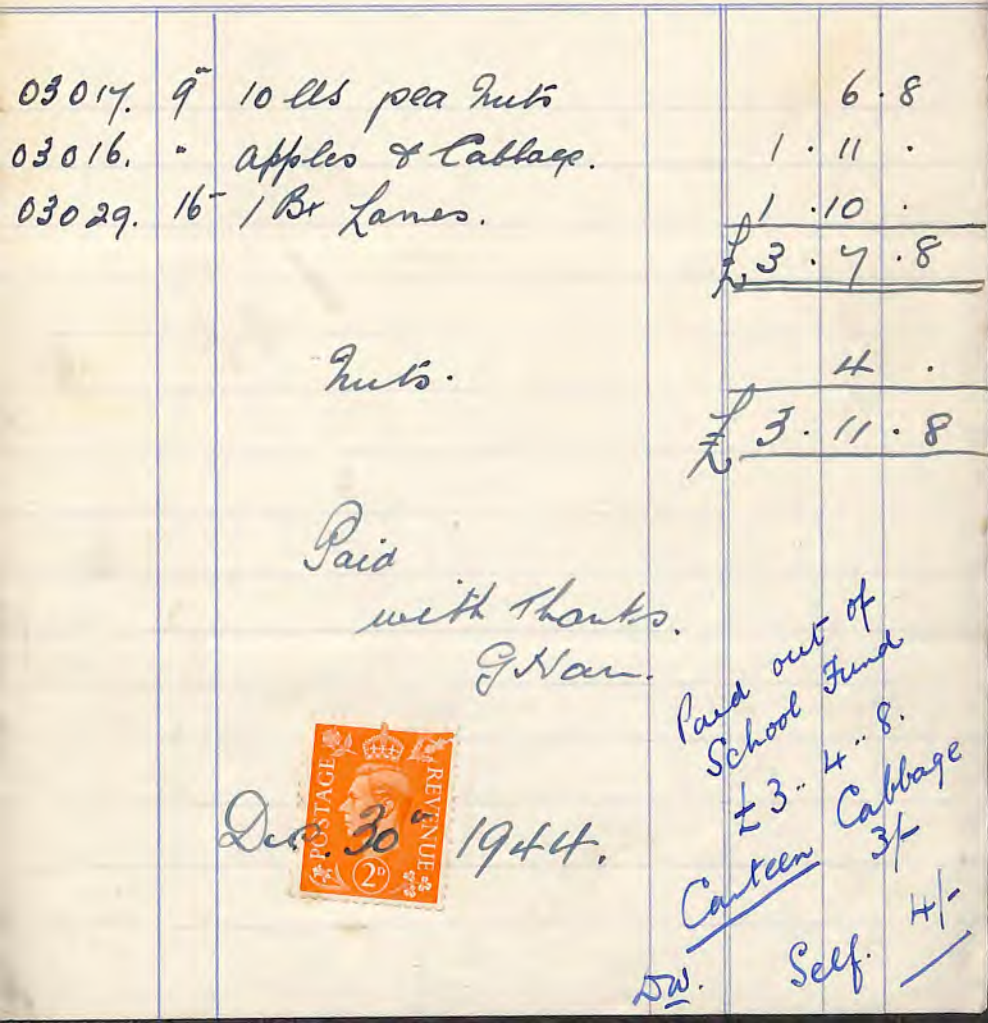 03017. 9" 10 lbs pea Nuts 6 . 8
03016. " apples & Cabbage. 1 . 11 .
03029. 16 1 Bx 1 . 10 .
£ 3 . 7 . 8
Nuts. 4 .
£ 3 . 11 . 8
Paid
with Thanks.
POSTAGE REVENUE
2D
Dec. 30" 1944.
Paid out of
School Fund
£3 .. 4 .. 8.
Canteen Cabbage
3/-
Self. 4/-
DW.